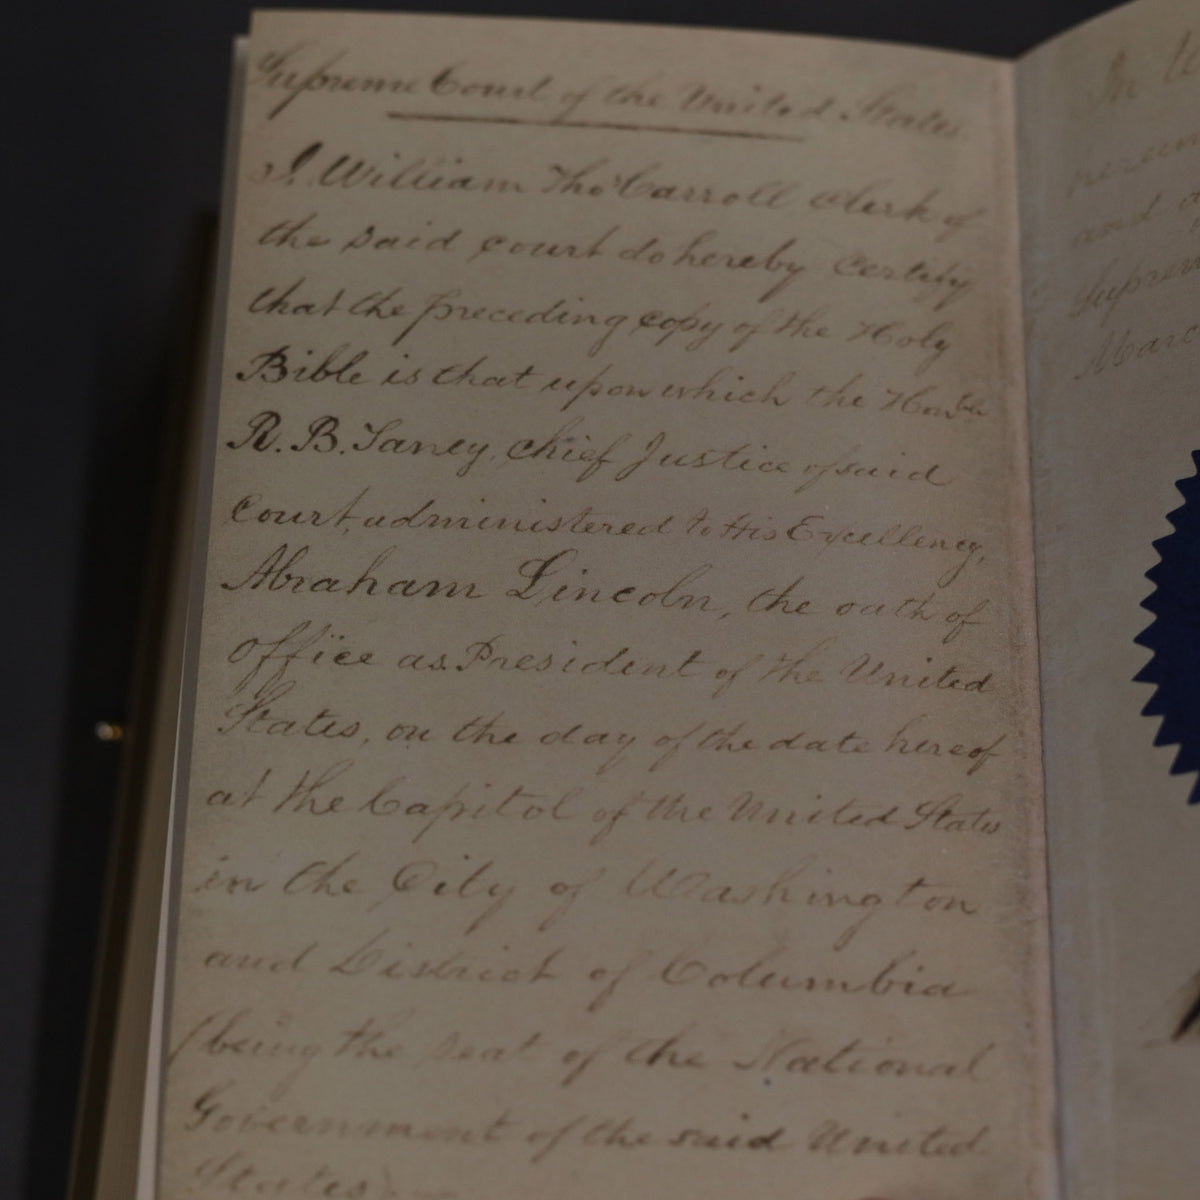 Supreme Court of the United States.
I, William Thos Carroll clerk of
the said court do hereby certify
that the preceding copy of the Holy
Bible is that upon which the Honble
R. B. Taney, chief Justice of said
court, administered to His Excellency,
Abraham Lincoln, the oath of
office as President of the United
States, on the day of the date hereof
at the Capitol of the United States
in the City of Washington
and District of Columbia
(being the seat of the National
Government of the said United
States
In
hereun
and
Suprem
Marc